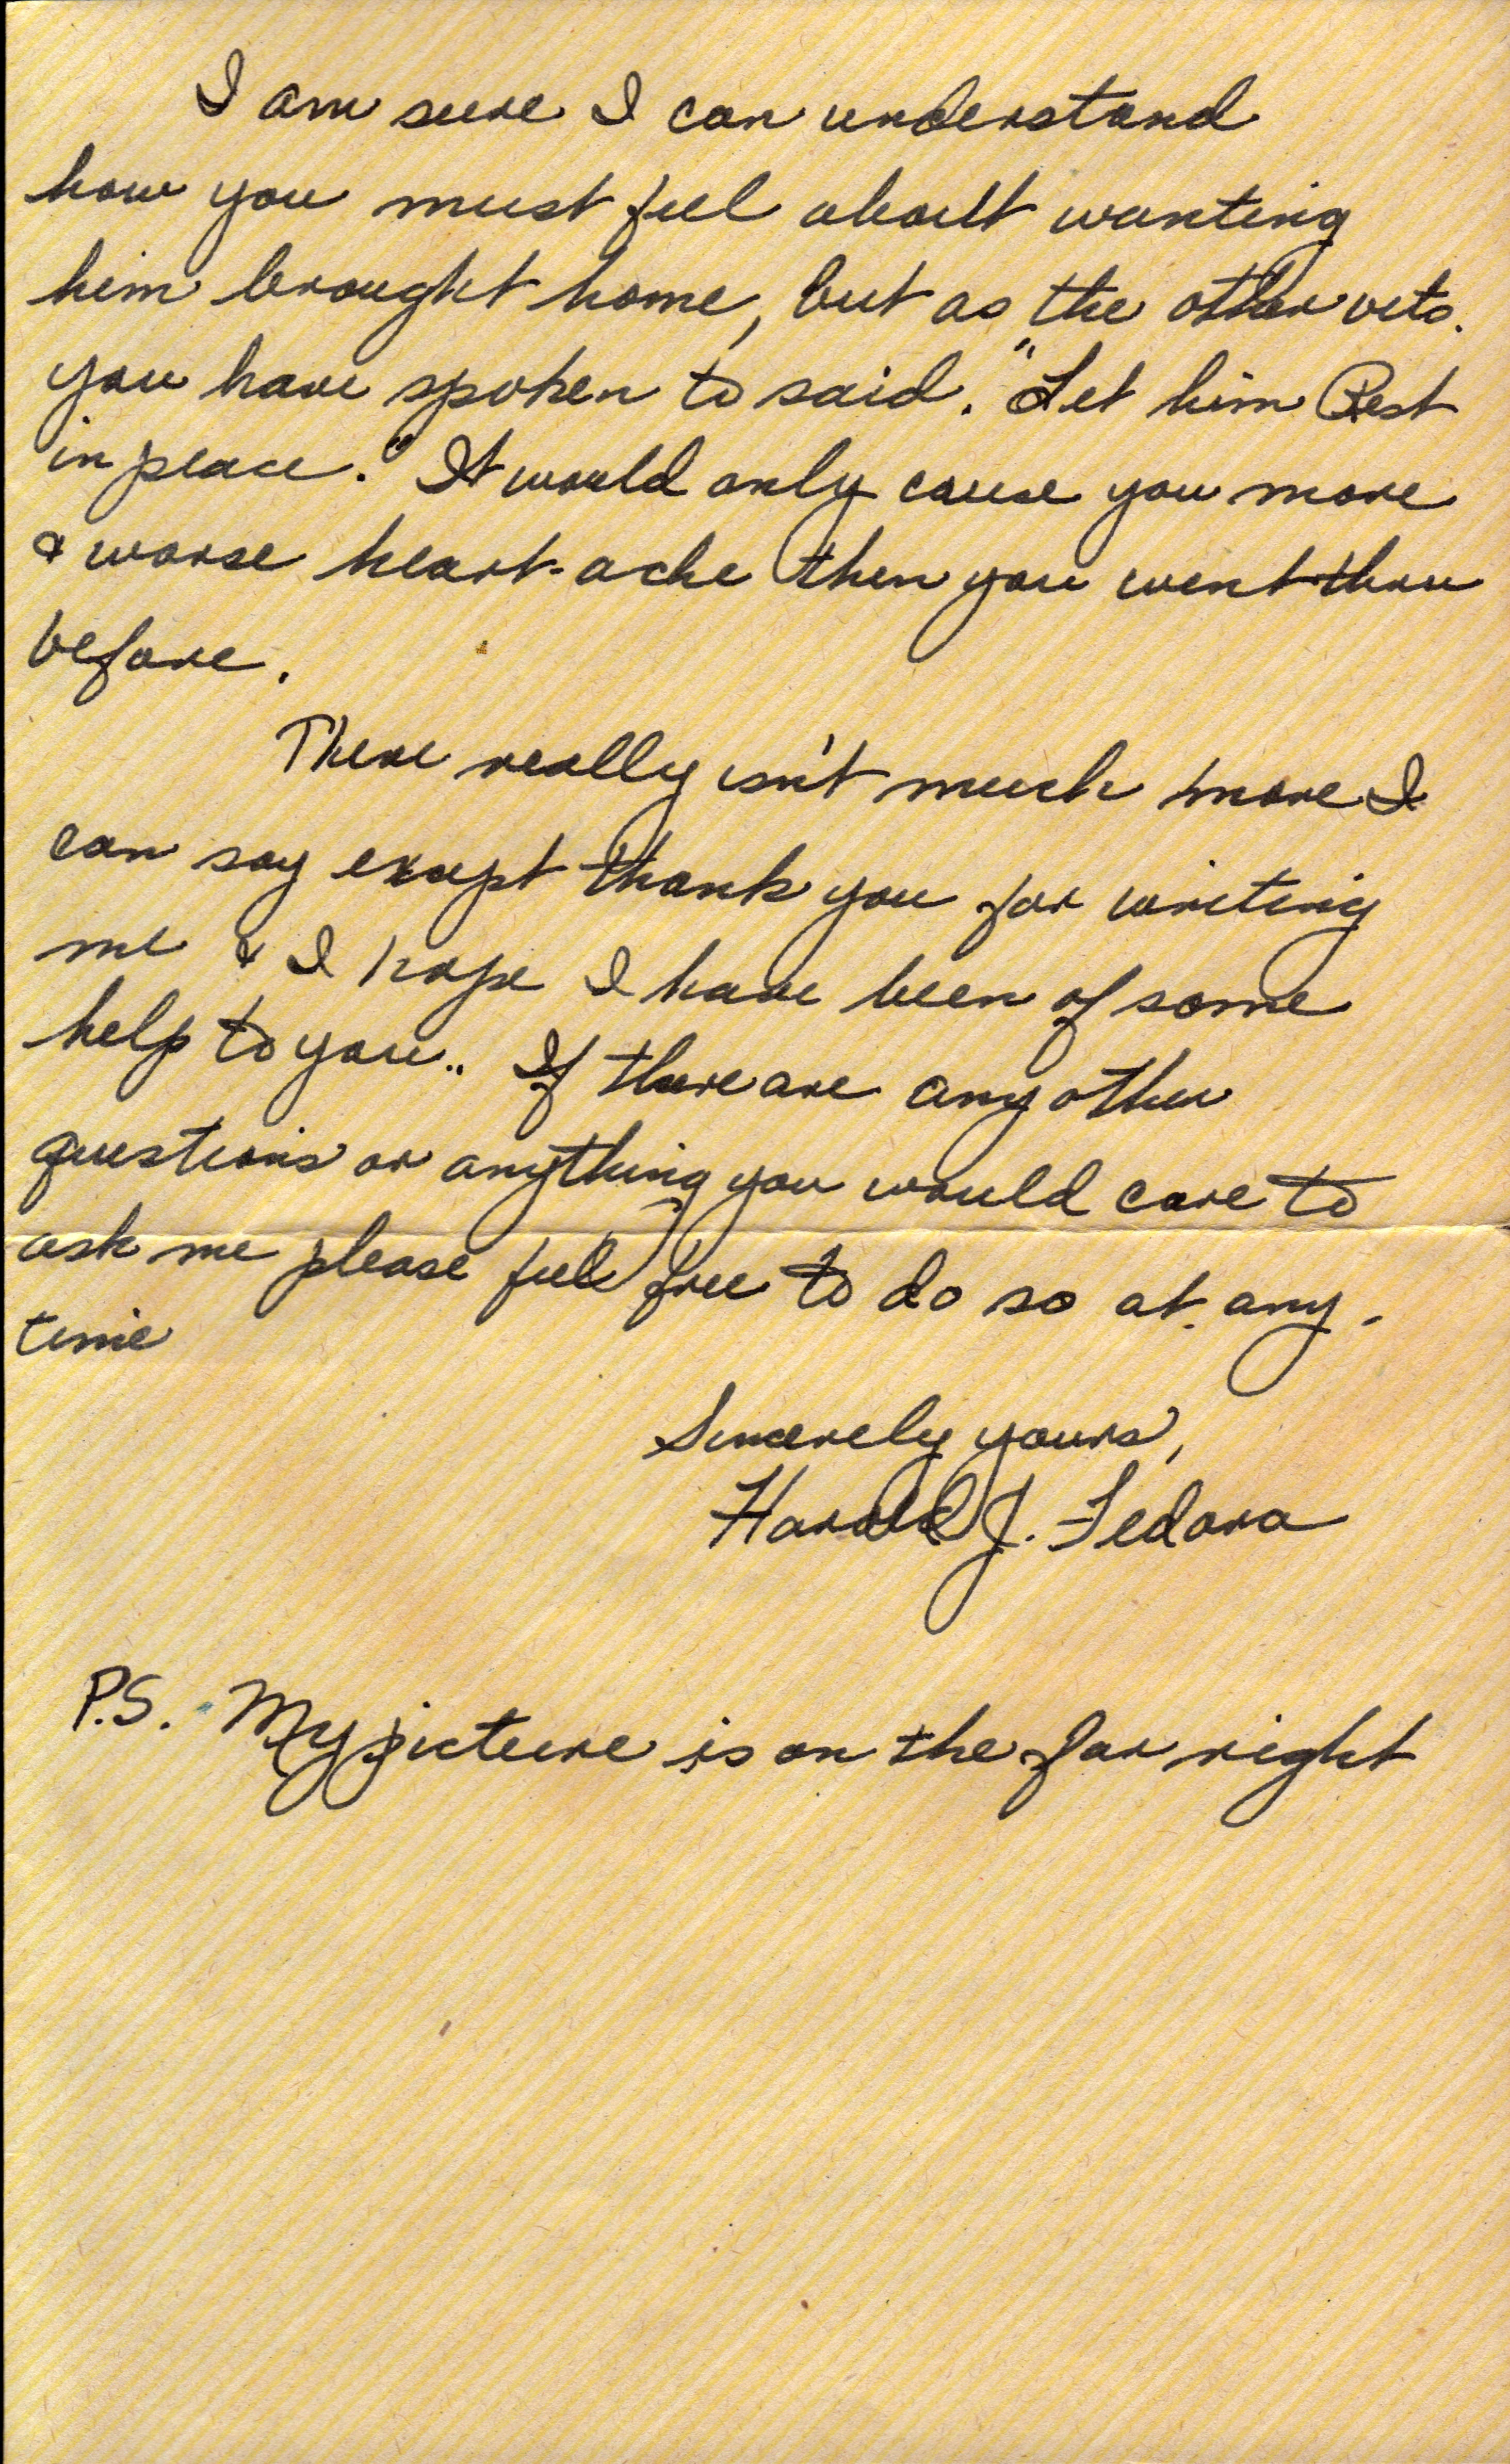 I am sure I can understand
how you must feel about wanting
him brought home, but as the other vets.
you have spoken to said. "Let him Rest
in peace." It would only cause you more
& worse heart-ache then you went thru
before.
There really isn't much more I
can say except thank you for writing
me & I hope I have been of some
help to you.. If there are any other
questions or anything you would care to
ask me please feel free to do so at any-
time
Sincerely yours,
Harold J. Fedora
P.S. My picture is on the far right